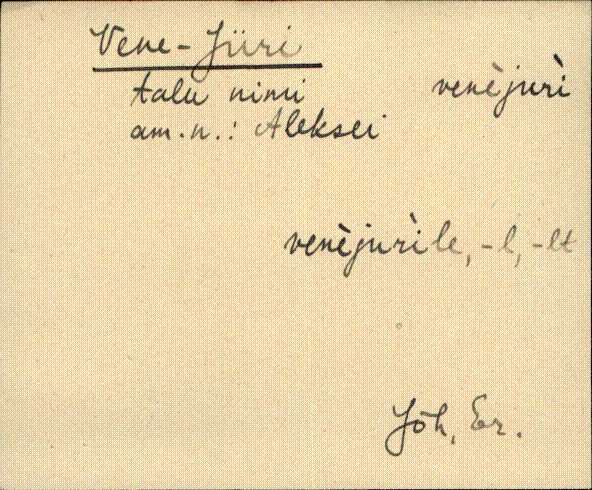 Vene-Jüri
talu nimi venèjuri̇̀
am.n.: Aleksei
venèjurìle, -l, -lt
Jõh, Er.